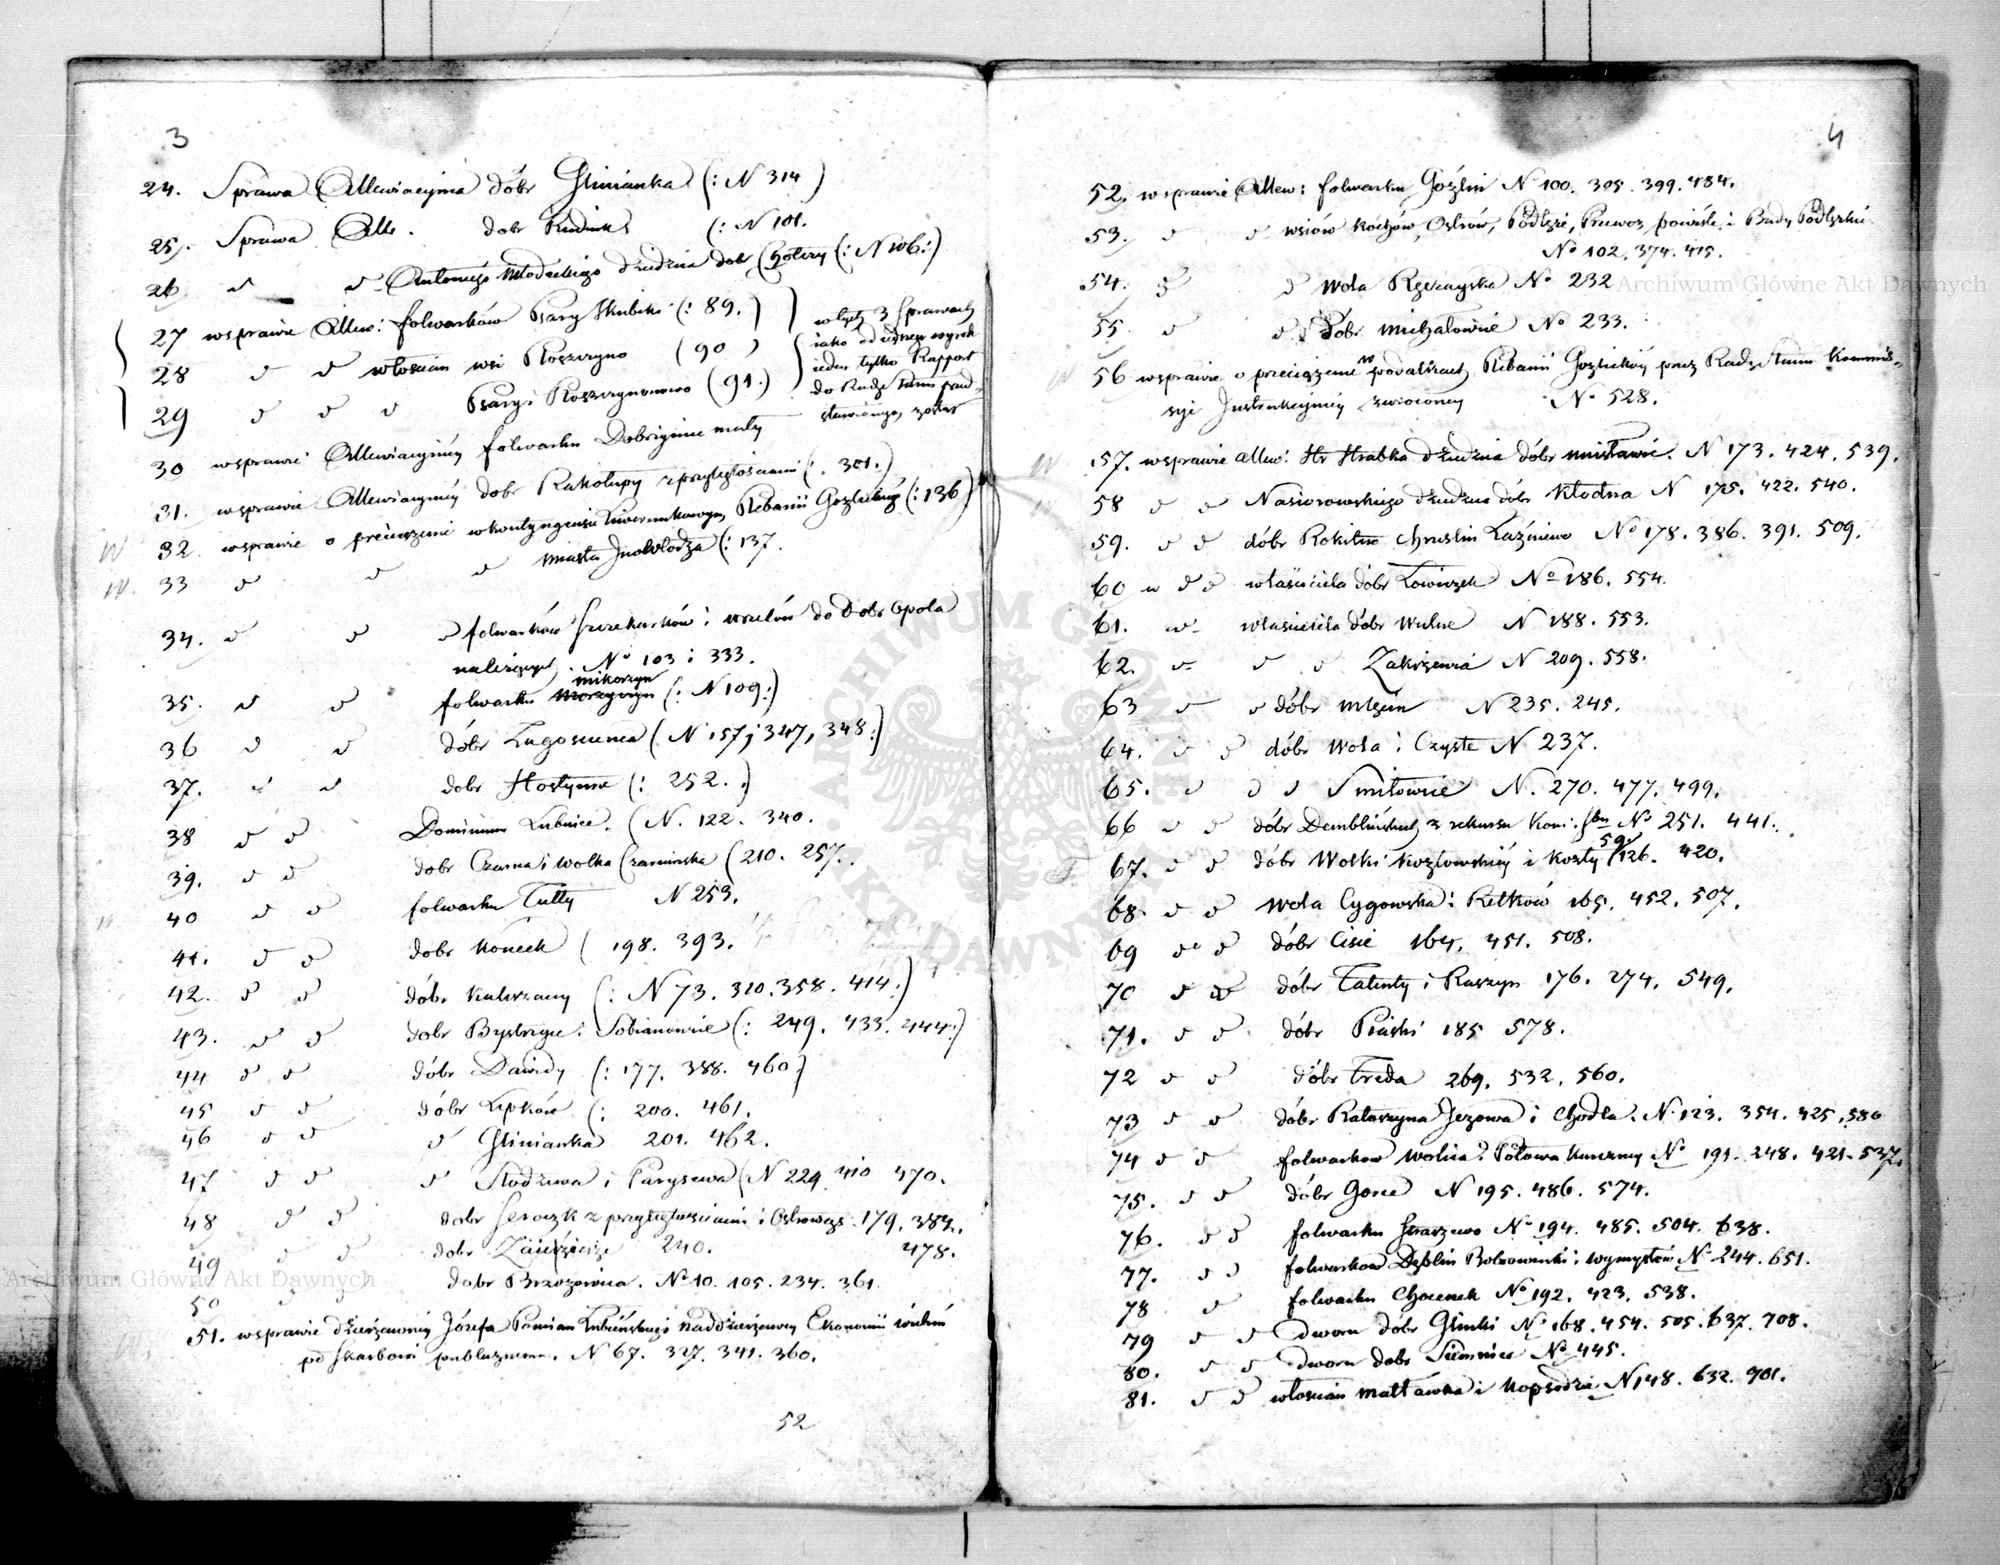 3
24. Sprawa Allewiacyjna dóbr Glinianka (: N 314)
25. Sprawa Alle. dobr Rudnik (: N 101.
26 d d Antoniego Młodeckiego dziedzica dobr (: N 106:)
27 w sprawie Allew: folwarków Psary Skubiki (: 89.)
28 d d włościan wsi Roszczyno (90)
29 d d d Psary i (91.)
w tych 3 Sprawach
iako od iednego wyrok
ieden tylko Rapport
do Rady Stanu przed-
stawionym został
30 w sprawie Allewiacyjnéy folwarku Dobrzynie mały
31. w sprawie Allewiacyjnéy dobr Rakołupy z przyległościami (. 301.)
32. w sprawie o w kontyngensie Liwerunkowym Plebanii Gozlickiéy (: 136)
33 d d d miasta Inowłodza (: 137.
34. d d d folwarków Szczekarków i do Dobr Opola
należących. No 103 i 333.
35. d d folwarku mikorzyn (: N 109:)
36 d d dóbr (N 157, 347, 348:)
37. d d dobr Hostynne (: 252.:)
38 d d Dominium Lubnice. (N. 122. 340.
39. d d dobr Czarna i Wolka Czarninska (210. 257.
40 d d folwarku Tulły N 253.
41. d d dobr Koneck (198. 393.
42. d d dóbr (: N 73. 310. 358. 414:)
43. d d dobr Bystrzyce i Sobianowice (: 249. 433. 444:)
44 d d dóbr Dawidy (: 177. 388. 460)
45 d d dóbr Lipków (: 200. 461.
46 d d d Glinianka 201. 462.
47 d d d i Parysewa (N 229 410 470.
48 d d dobr Seroczk z przyległościami i 179. 387.
49 d d dobr 240. 478.
50 d d dobr Brzozowica. No 10. 105. 234. 361.
51. w sprawie dzierżawnéy Józefa Pomian Łubińskiego naddzierżawcy Ekonomii
po skarbowi publicznemu. N 67. 327. 341. 360.
52
4
52. w sprawie Allew: folwarku Gozlin N 100. 305. 399. 484.
53. d d wsiów Kochów, Ostrów, Podłęż, Przewoz, powiśle i Budy Podłęzkie
No 102. 374. 415.
54. d d Wola No 232
55 d d Dóbr Michałowice No 233.
56 w sprawie o przeciążenie w podatkach Plebanii Gozlickiéy przez Radę Stanu Kommis-
syi Instrukcyjnéy zwróconey No 528.
57. w sprawie allew: Hr Hrabka dziedzica dóbr Mustawic. N 173. 424. 539.
58 d d Nasiorowskiego dziedzica dóbr Kłodna N 175. 422. 540.
59. d d dóbr Rokitno Chruslin Łaźniewo No 178. 386. 391. 509.
60 w d d właściciela dóbr Łowiczek No 186. 554.
61. w właściciela dóbr N 188. 553.
62. d d d Zakrzewia N 209. 558.
63 d d dóbr N 235. 245.
64. d d dóbr Wola i Czyste N 237.
65. d d d Smiłowice N. 270. 477. 499.
66 d d dóbr Demblińskich z rekursu No 251. 441.
67. d d dóbr Wolki Kozłowskiéy i Kozły 59 126. 420.
68. d d Wola Cygowska i Retków 165. 452. 507.
69 d d dóbr Cisie 164. 451. 508.
70 d d dóbr Falenty i Raszyn 176. 274. 549.
71. d d dóbr Piaski 185 578.
72 d d dóbr Treda 269. 532. 560.
73 d d dóbr Katarzyna Jezowa i Chodla. N 123. 354. 425. 580
74 d d folwarków Wolica i Połowa No 191. 248. 421. 537.
75. d d dóbr Gorce N 195. 486. 574.
76. d d folwarku Straszewo No 194. 485. 504. 638.
77. d d folwarków Dęblin Bobrowniki i Wymysłów No 244. 651.
78 d folwarku Choczenek No 192. 423. 538.
79 d d dworu dóbr Glinki No 168. 454. 505. 637. 708.
80. d d dworu dobr Siennica No 445.
81. d d włościan i N 148. 632. 701.
Archiwum Główne Akt Dawnych
ARCHIWUM GŁÓWNE AKT DAWNYCH
Archiwum Główne Akt Dawnych